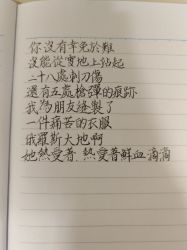 你沒有幸免於難
沒能從實地上站起
二十八處刺刀傷
還有五處槍彈的痕跡
我為朋友縫製了
一件痛苦的衣服
俄羅斯大地啊
她熱愛著、熱愛著鮮血滴滴